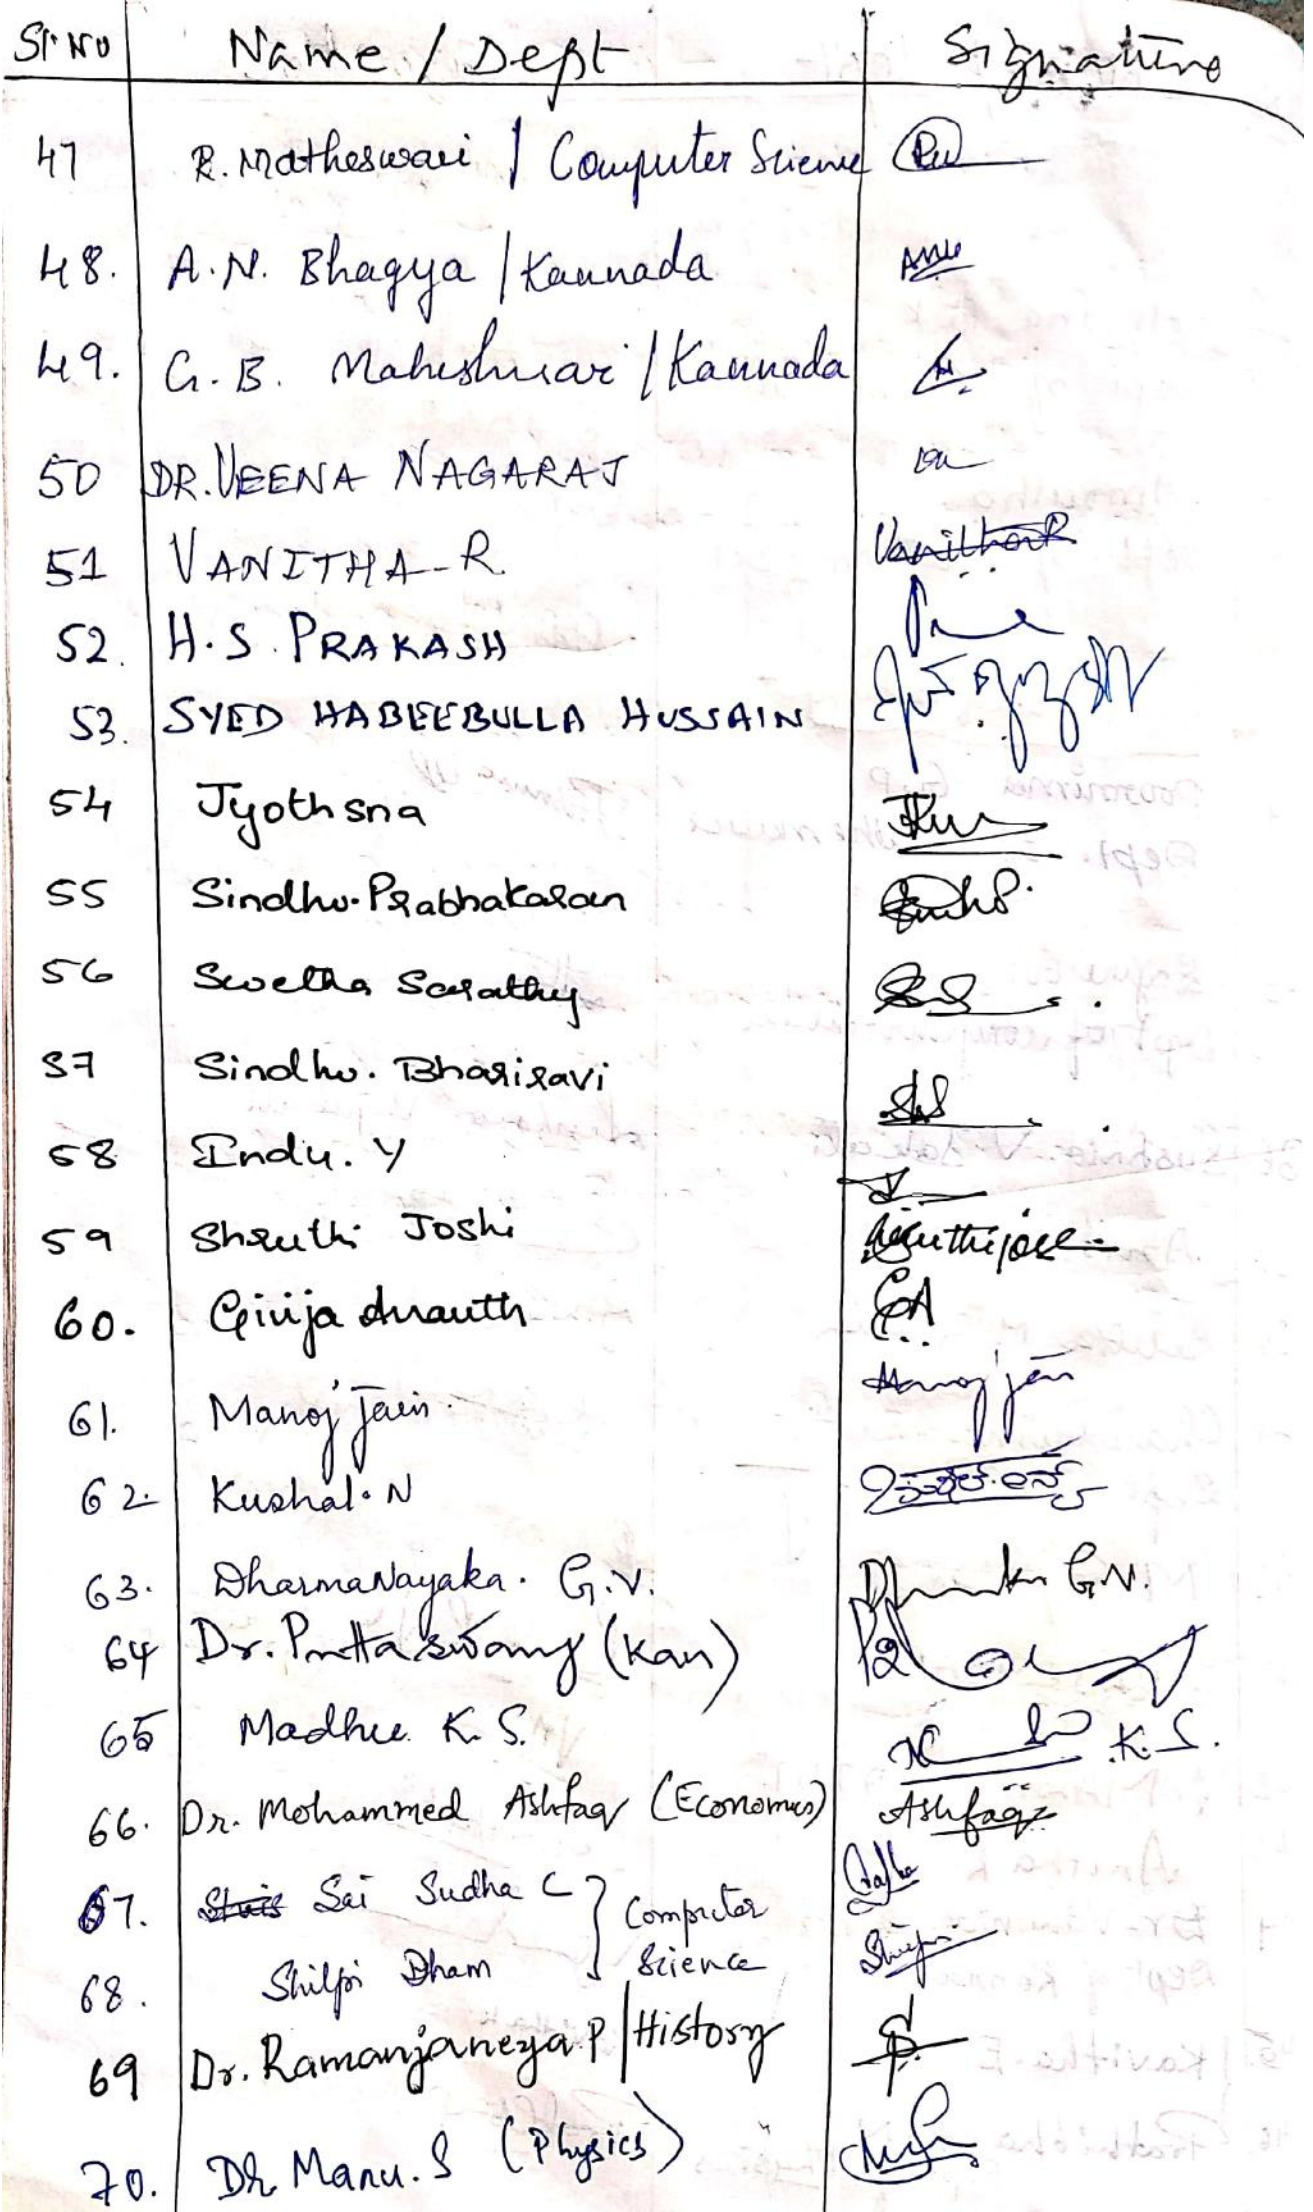 Sl No Name / Dept Signature
47 R. Matheswari / Computer Science
48. A.N. Bhagya / Kannada
49. G.B. Maheshwari / Kannada
50 DR. VEENA NAGARAJ
51 VANITHA-R. Vanitha R
52. H.S. PRAKASH
53. SYED HABEEBULLA HUSSAIN
54 Jyothsna
55 Sindhu. Prabhakaran
56 Swetha Sarathy
57 Sindhu. Bharisavi
58 Indu. Y
59 Shruthi Joshi
60. Girija Ananth GA
61. Manoj Jain. Manoj jain
62. Kushal. N
63. DharmaNayaka. G.V. G.V.
64 Dr. Puttaswamy (Kan)
65 Madhu K.S. K.S.
66. Dr. Mohammed Ashfaq (Economics) Ashfaq
67. Sai Sudha C } Computer
68. Shilpi Dham Science
69 Dr. Ramanjaneya P / History
70. Dr Manu. S (Physics)